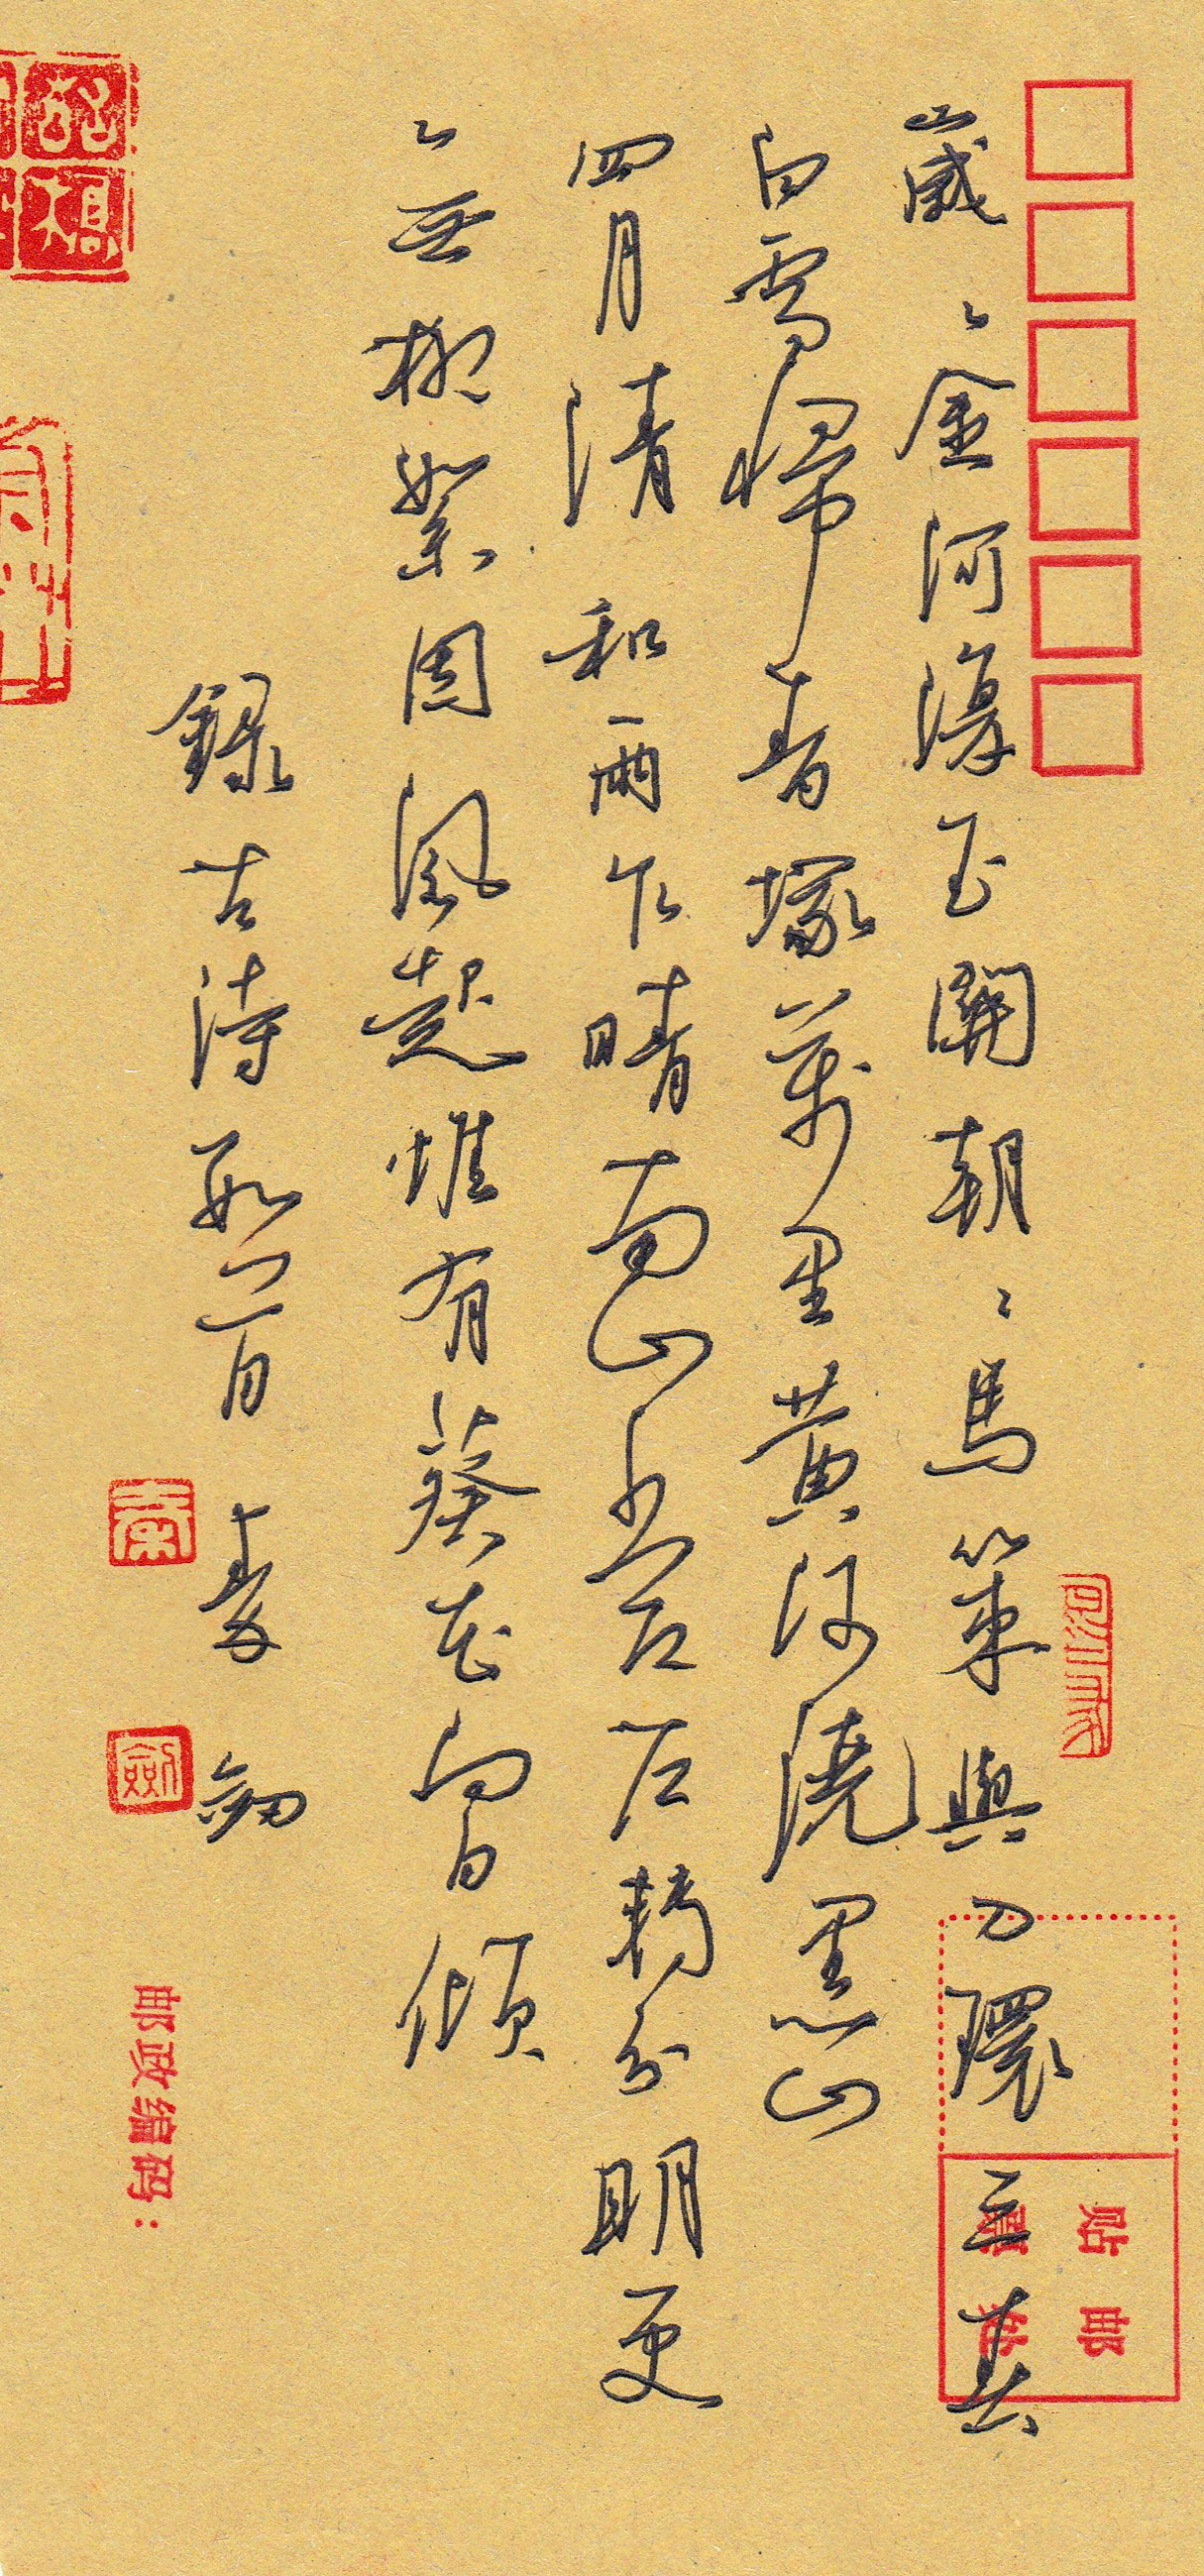 歲〻金河復玉關朝〻馬策與刀環三春
白雪歸青塚萬里黃河繞黑山
四月清和雨乍晴南山當户轉分明更
〻無柳絮因風起惟有葵花向日傾
錄古詩 首 秦劍
贴邮
票处
邮政编码：
秦
劍